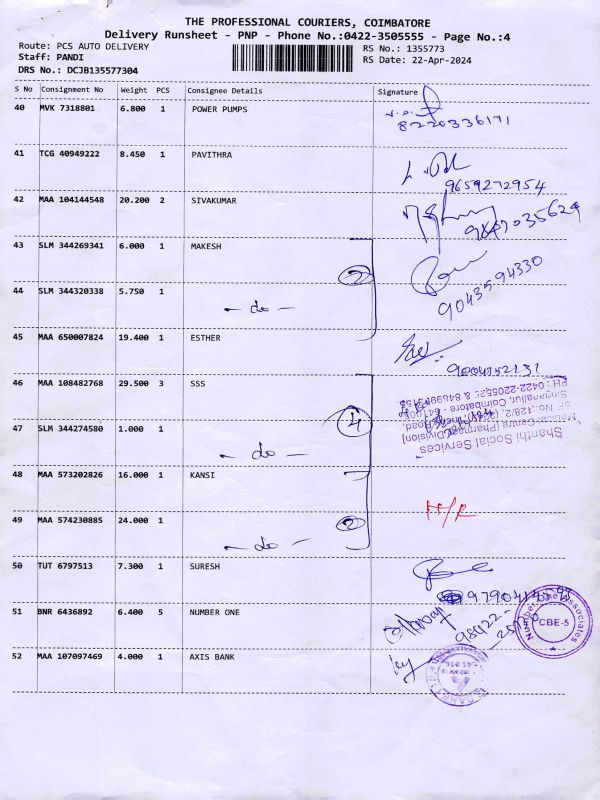 THE PROFESSIONAL COURIERS, COIMBATORE
Delivery Runsheet - PNP - Phone No.:0422-3505555 - Page No.:4
Route: PCS AUTO DELIVERY
RS No.: 1355773
Staff: PANDI
RS Date: 22-Apr-2024
DRS No.: DCJB135577304
S No Consignment No Weight PCS Consignee Details Signature
40 MVK 7318801 6.800 1 POWER PUMPS
8220336171
41 TCG 40949222 8.450 1 PAVITHRA
9659272954
42 MAA 104144548 20.200 2 SIVAKUMAR
9847035629
43 SLM 344269341 6.000 1 MAKESH
2
9043594330
44 SLM 344320338 5.750 1
- do -
45 MAA 650007824 19.400 1 ESTHER
9004152131
46 MAA 108482768 29.500 3 SSS
4
Shanthi Social Services
Medical Centre [Pharmacy Division]
SF No. 128/2, Road,
Singanallur, Coimbatore - 641 005.
PH : 0422-2205525 &
47 SLM 344274580 1.000 1
- do -
48 MAA 573202826 16.000 1 KANSI
2
H/R
49 MAA 574230885 24.000 1
- do -
50 TUT 6797513 7.300 1 SURESH
51 BNR 6436892 6.400 5 NUMBER ONE
98422-
Number One Associates
CBE-5
52 MAA 107097469 4.000 1 AXIS BANK